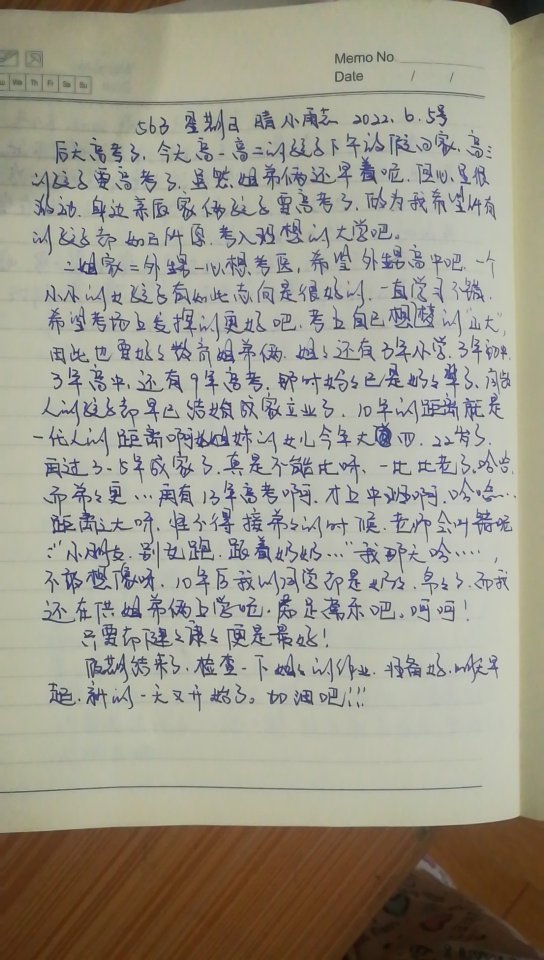 Memo No
Date / /
We Th Fr Sa Su
563 星期日 晴 小雨 2022.6.5号
后天高考了,今天高一高二的孩子下午放假回家,高三
的孩子要高考了,虽然姐弟俩还早着呢,但心里很
激动,身边亲戚家俩孩子要高考了,做为我希望所有
的孩子都如己所愿,考入理想的大学吧。
二姐家二外甥一心想考医,希望外甥高中吧,一个
小小的女孩子有如此志向是很好的,一直学习不错,
希望考场上发挥的更好吧,考上自己想梦的“正大”,
因此也要好好教育姐弟俩,姐姐还有3年小学,3年初中,
3年高中,还有9年高考,那时妈妈已是奶奶辈了,同龄
人的孩子都早已结婚成家立业了,10年的距离就是
一代人的距离啊,姐妹的女儿今年大四,22岁了,
再过3-5年成家了,真是不能比呀,一比比老了,哈哈
而弟弟更…再有13年高考啊,才上中班啊,哈哈…
距离远大呀,怪不得接弟弟的时候,老师会叫错呢
:“小朋友,别乱跑,跟着奶奶…”我那天哈……,
不敢想像呀,10年后我的同学都是奶奶,辈了,而我
还在供姐弟俩上学呢,痛是喜乐吧。呵呵!
只要都健健康康便是最好!
假期结束了,检查一下姐姐的作业,准备好,明天早
起,新的一天又开始了。加油吧!!!